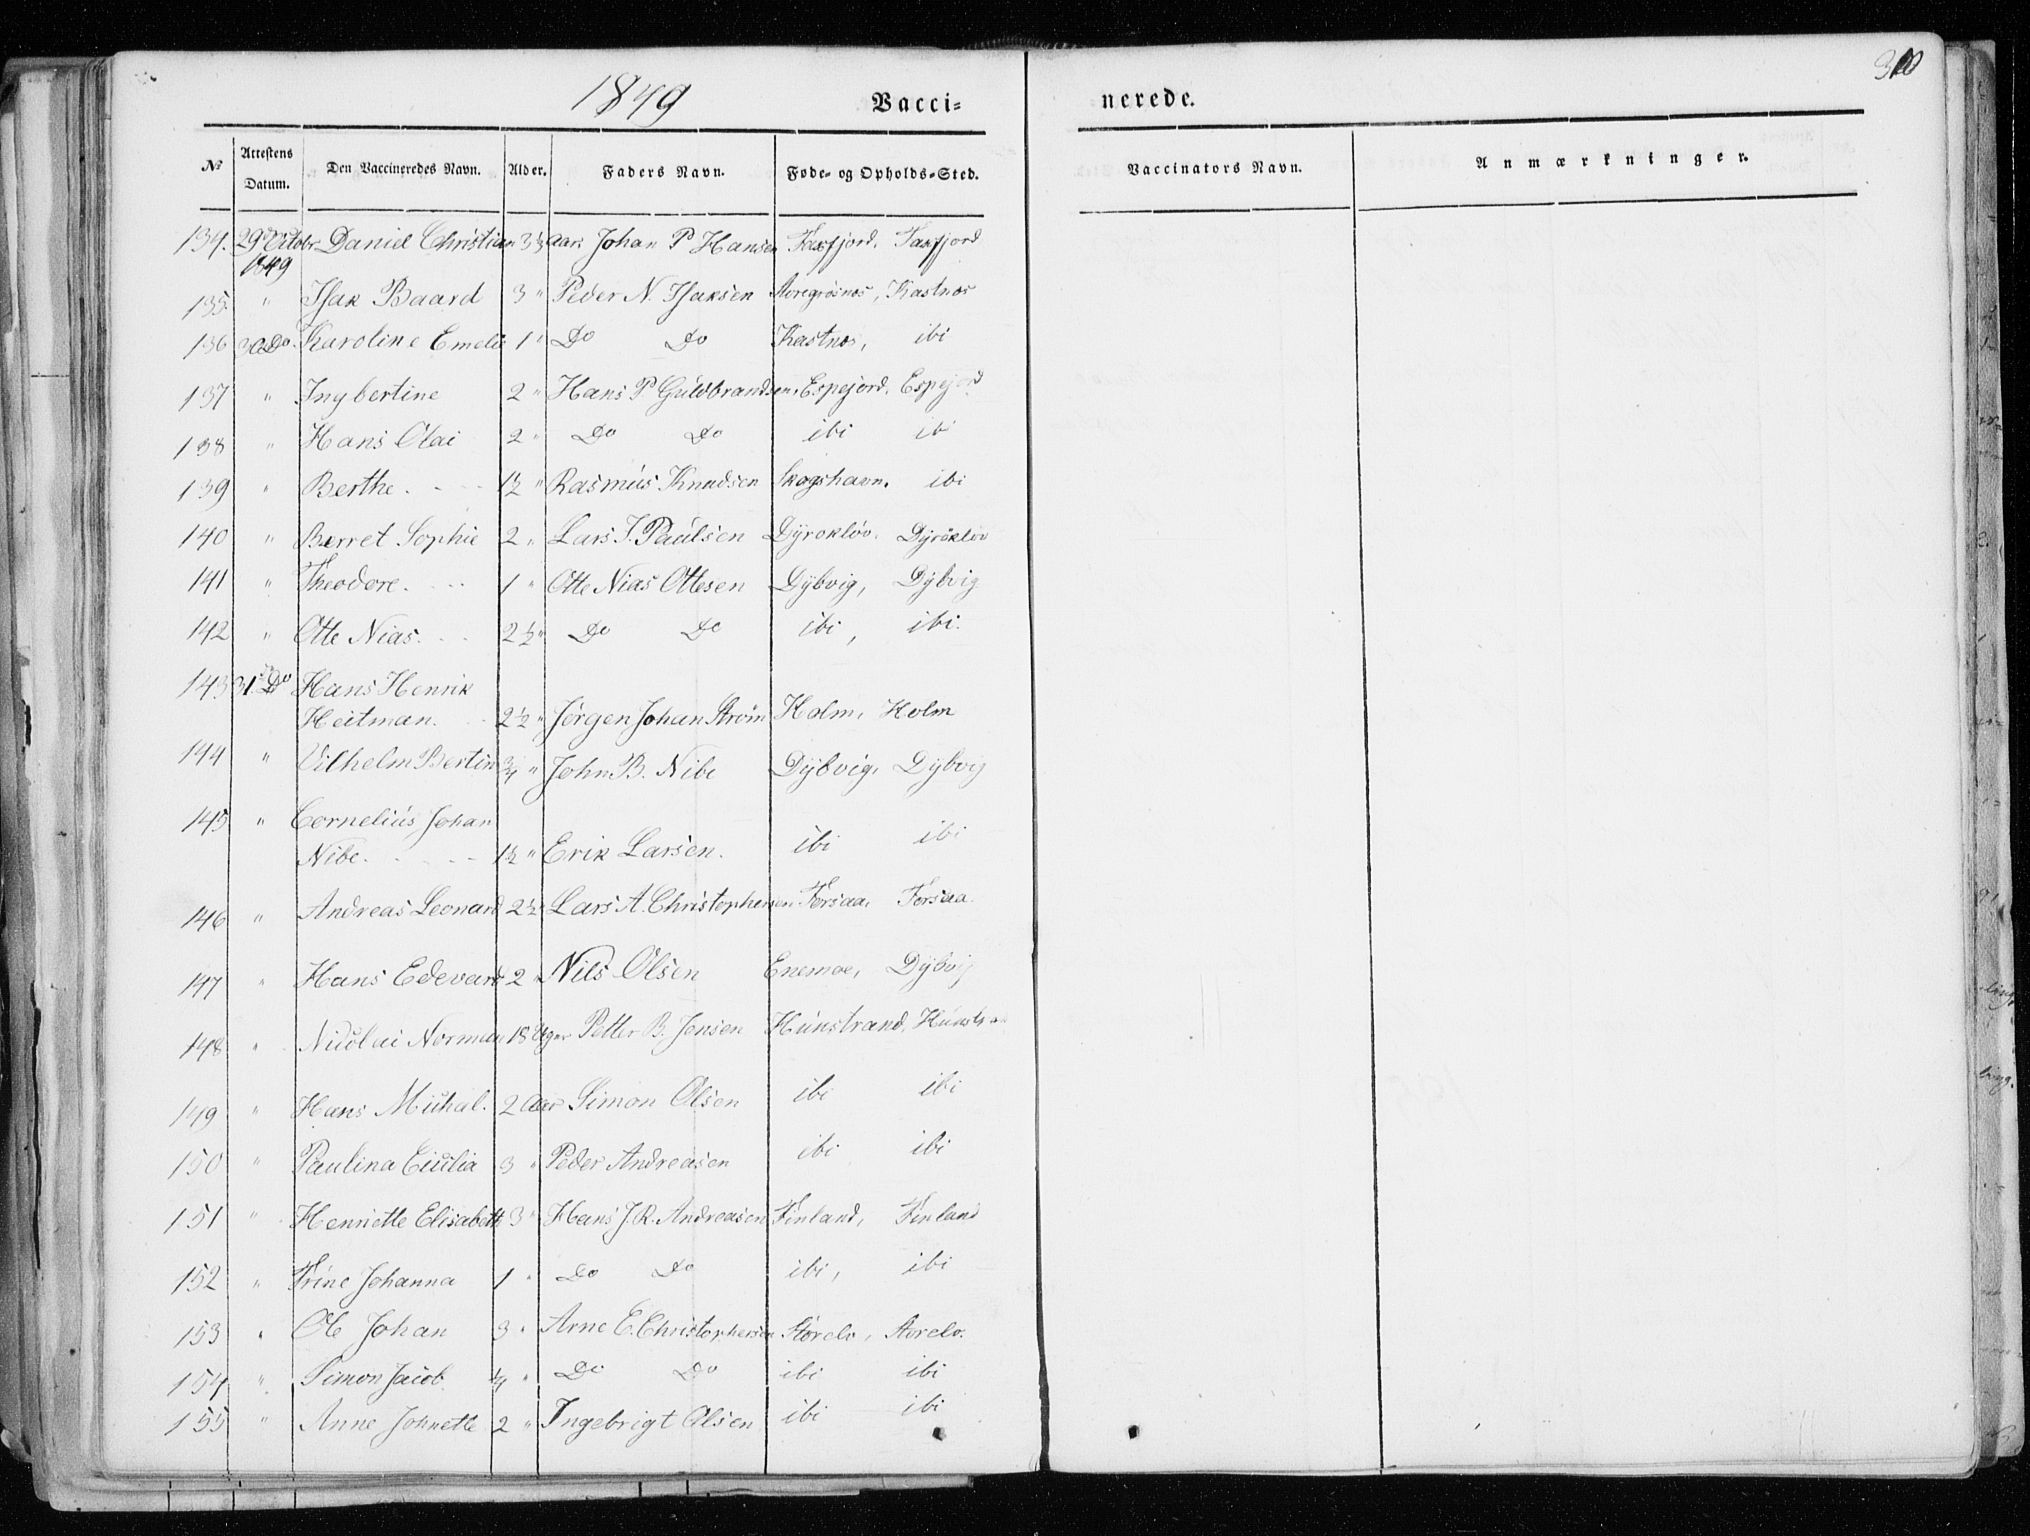 1849 Vacci= nerede. 310
№ Attestens Datum. Den Vaccineredes Navn. Alder. Faders Navn. Føde- og Opholds-Sted. Vaccinators Navn. Anmærkninger.
134. 29 Octobr 1849 Daniel Christian 3½ aar Johan P Hansen Faxfjord, Faxfjord
135 " Isak Baard 3 " Peder N. Isaksen Storegrøsnæs, Kastnæs
136 30 Do Karoline Emelie 1 " Do Do Kastnæs, ibi
137 " Ingbertine 2 " Hans P Guldbrandsen, Espejord, Espejord
138 " Hans Olai 2 " Do Do ibi ibi
139 " Berthe. 1½ " Rasmus Knudsen Skogshavn. ibi
140 " Berret Sophie 2 " Lars I. Paulsen Dÿrokløv. Dÿrokløv
141 " Theodore. 1 " Otte Nias Ottesen Dÿbvig, Dÿbvig
142 " Otte Nias. 2½ " Do Do ibi, ibi.
143 31 Do Hans Henrik
Heitman. 2½ " Jørgen Johan Strøm Holm, Holm
144 " Vilhelm Bertin ¾ " John B. Nibe Dÿbvig, Dÿbvig
145 " Cornelius Johan
Nibe. 1½ " Erik Larsen. ibi ibi
146 " Andreas Leonard 2½ Lars A. Christophersen Forsaa, Forsaa.
147 " Hans Edevard 2 " Nils Olsen Enemoe, Dÿbvig
148 " Nicolai Norman 18 Uger Petter B. Jensen Hunstrand, Hunstr
149 " Hans Michal. 2 Aar Simon Olsen ibi ibi
150 " Paulina Cicilia 3 " Peder Andreasen ibi ibi
151 " Henriette Elisabeth 3 " Hans J. R. Andreasen Finland, Finland
152 " Trine Johanna 1 " Do Do ibi, ibi
153 " Ole Johan 3 " Arne E. Christophersen Storelv, Storelv.
154 " Simon Jacob. ¼ " Do Do ibi ibi
155 " Anne Johnette 2 " Ingebrigt Olsen ibi ibi